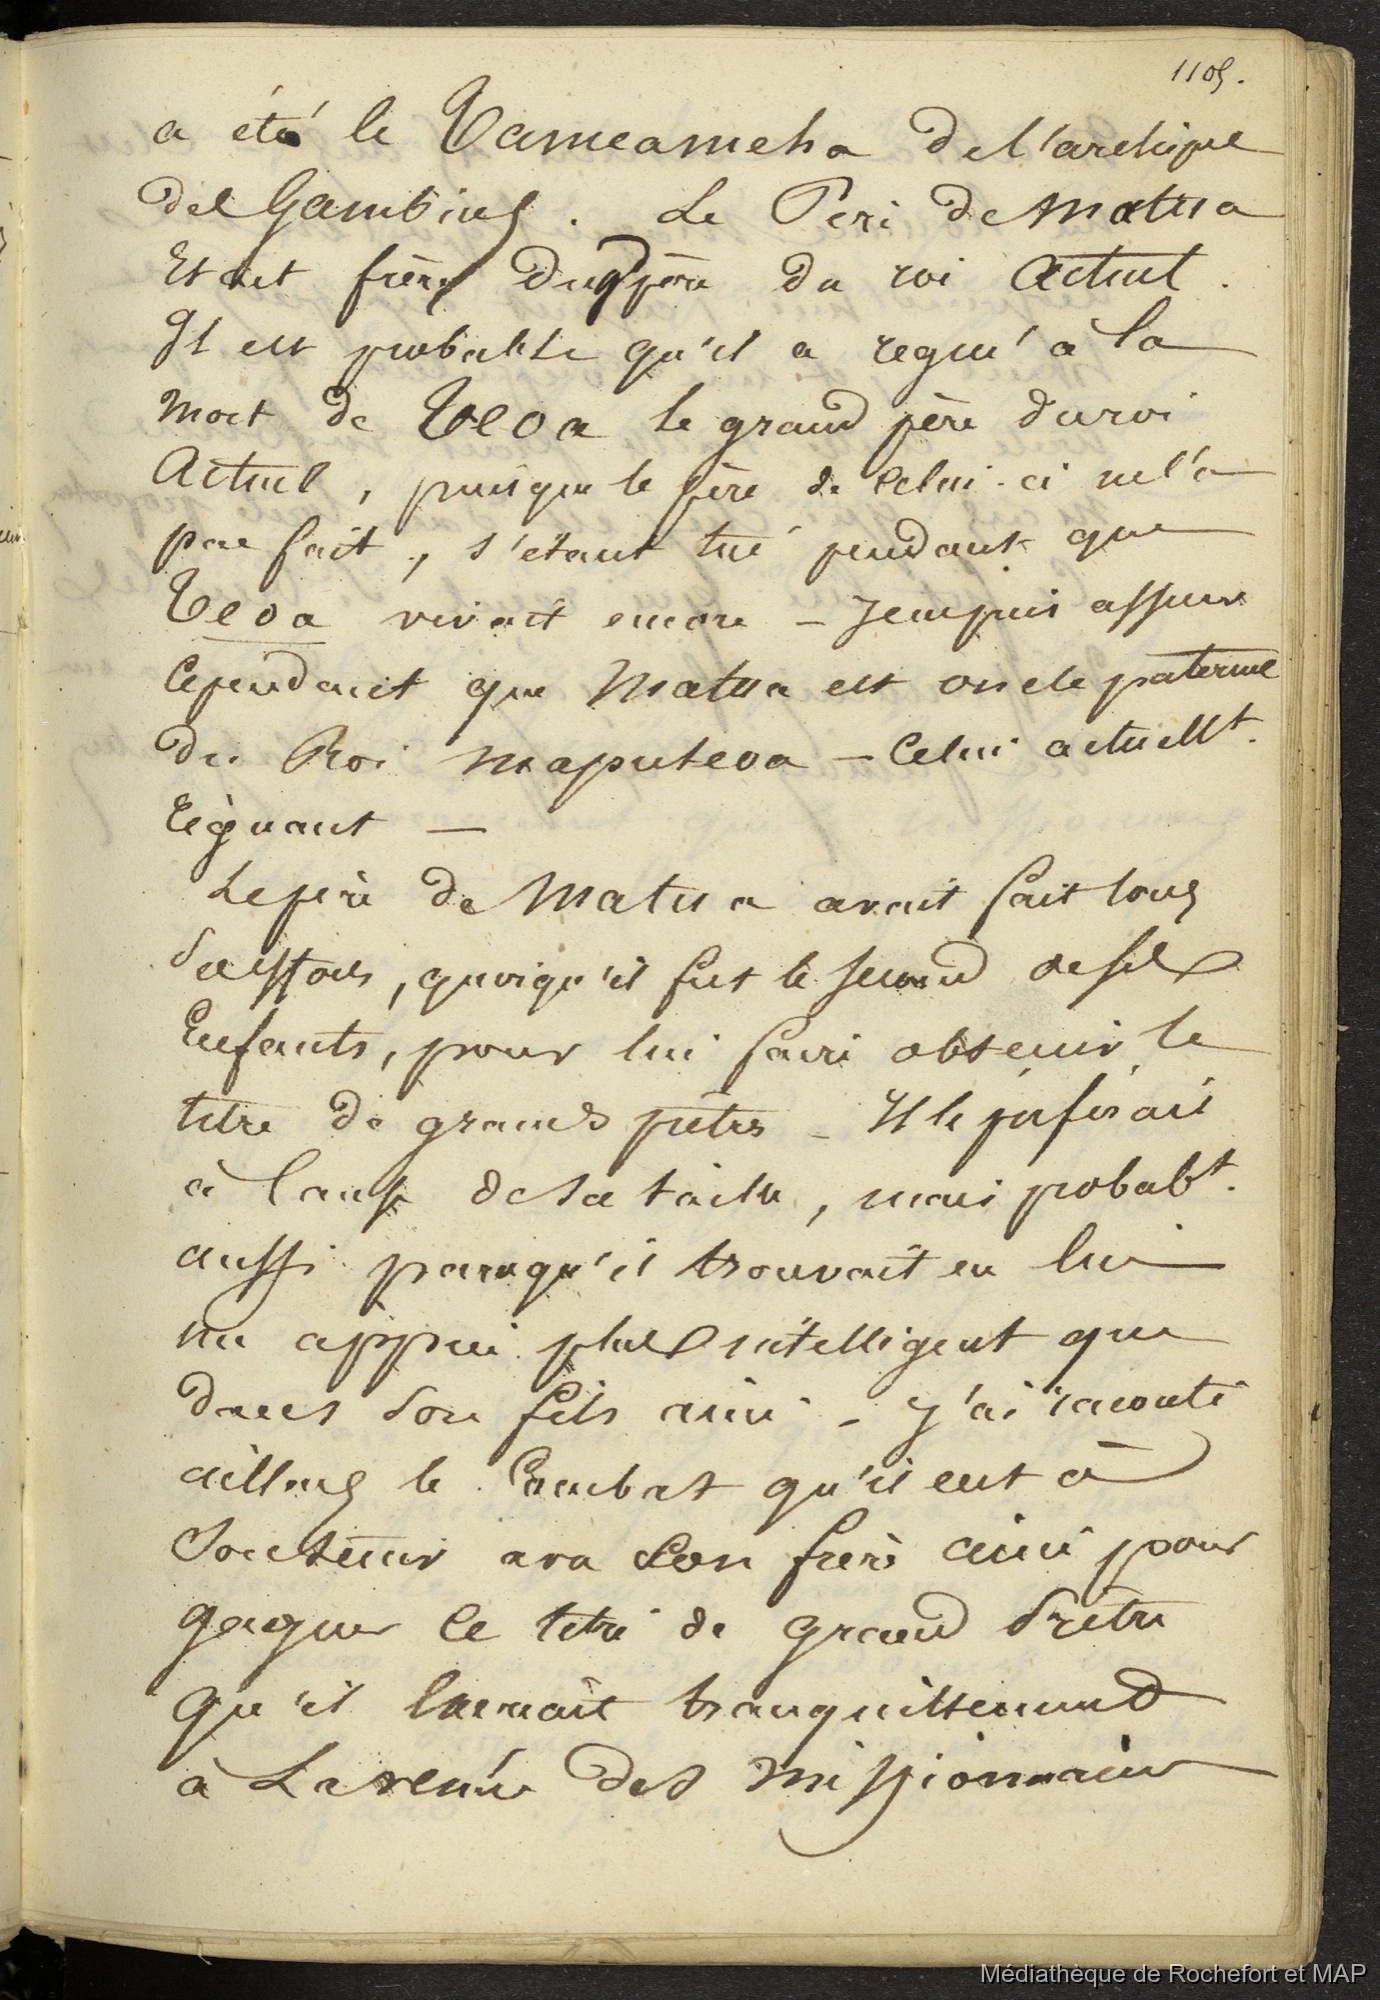 1105.
a été le Tameameha de l'archipel
des Gambiers. Le Père de Matua
Etait frère du père du roi Actuel.
Il est probable qu'il a regné à la
mort de Teoa le grand père du roi
Actuel, puisque le père de celui-ci ne l'a
pas fait, s'étant tué pendant que
Teoa vivait encore – Je puis assurer
Cependant que Matua est oncle paternel
du Roi Maputeoa – Celui actuellt.
Règnant –
Le père de Matua avait fait tous
ses efforts, quoiqu'il fut le second de ses
Enfants, pour lui faire obtenir le
titre de grand prêtre – Il le préférait
à cause de sa taille, mais probabt.
aussi parcequ'il trouvait en lui
un appui plus intelligent que
dans son fils ainé – J'ai raconté
ailleurs le Combat qu'il eut à
Soutenir avec son frère ainé pour
gagner le titre de grand Prêtre
qu'il tranquillement
à La venue des Missionnaires
Médiathèque de Rochefort et MAP